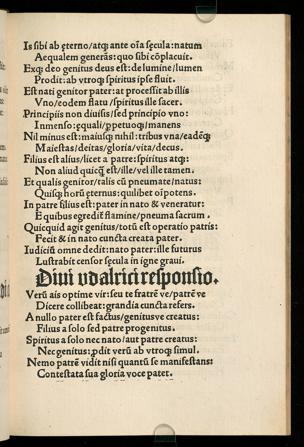 Is sibi ab ęterno/atqꝫ ante oīa sęcula:natum
Aequalem generās:quo sibi cōplacuit.
Exqꝫ deo genitus deus est:de lumine/lumen
Prodit:ab vtroqꝫ spiritus ipse fluit.
Est nati genitor pater:at processit ab illis
Vno/eodem flatu/spiritus ille sacer.
Principiis non diuisis/sed principio vno:
Inmenso:ęquali/ꝑpetuoqꝫ/manens
Nil minus est:maiusqꝫ nihil:tribus vna/eadēqꝫ
Maiestas/deitas/gloria/vita/decus.
Filius est alius/licet a patre:spiritus atqꝫ:
Non aliud quicꝗ̄ est/ille/vel ille tamen.
Et qualis genitor/talis cū pneumate/natus:
Quisqꝫ horū ęternus:quilibet oīpotens.
In patre filius est:pater in nato & veneratur:
E quibus egredit̄ flamine/pneuma sacrum.
Quicquid agit genitus/totū est operatio patris:
Fecit & in nato cuncta creata pater.
Iudiciū omne dedit:nato pater:ille futurus
Lustrabit censor sęcula in igne graui.
Diui vdalrici responsio.
Verū ais optime vir:seu te fratrē ve/patrē ve
Dicere collibeat:grandia cuncta refers.
A nullo pater est factus/genitusve creatus:
Filius a solo sed patre progenitus.
Spiritus a solo nec nato/aut patre creatus:
Nec genitus:ꝓdit verū ab vtroqꝫ simul.
Nemo patrē vidit nisi quantū se manifestans:
Contestata sua gloria voce patet.